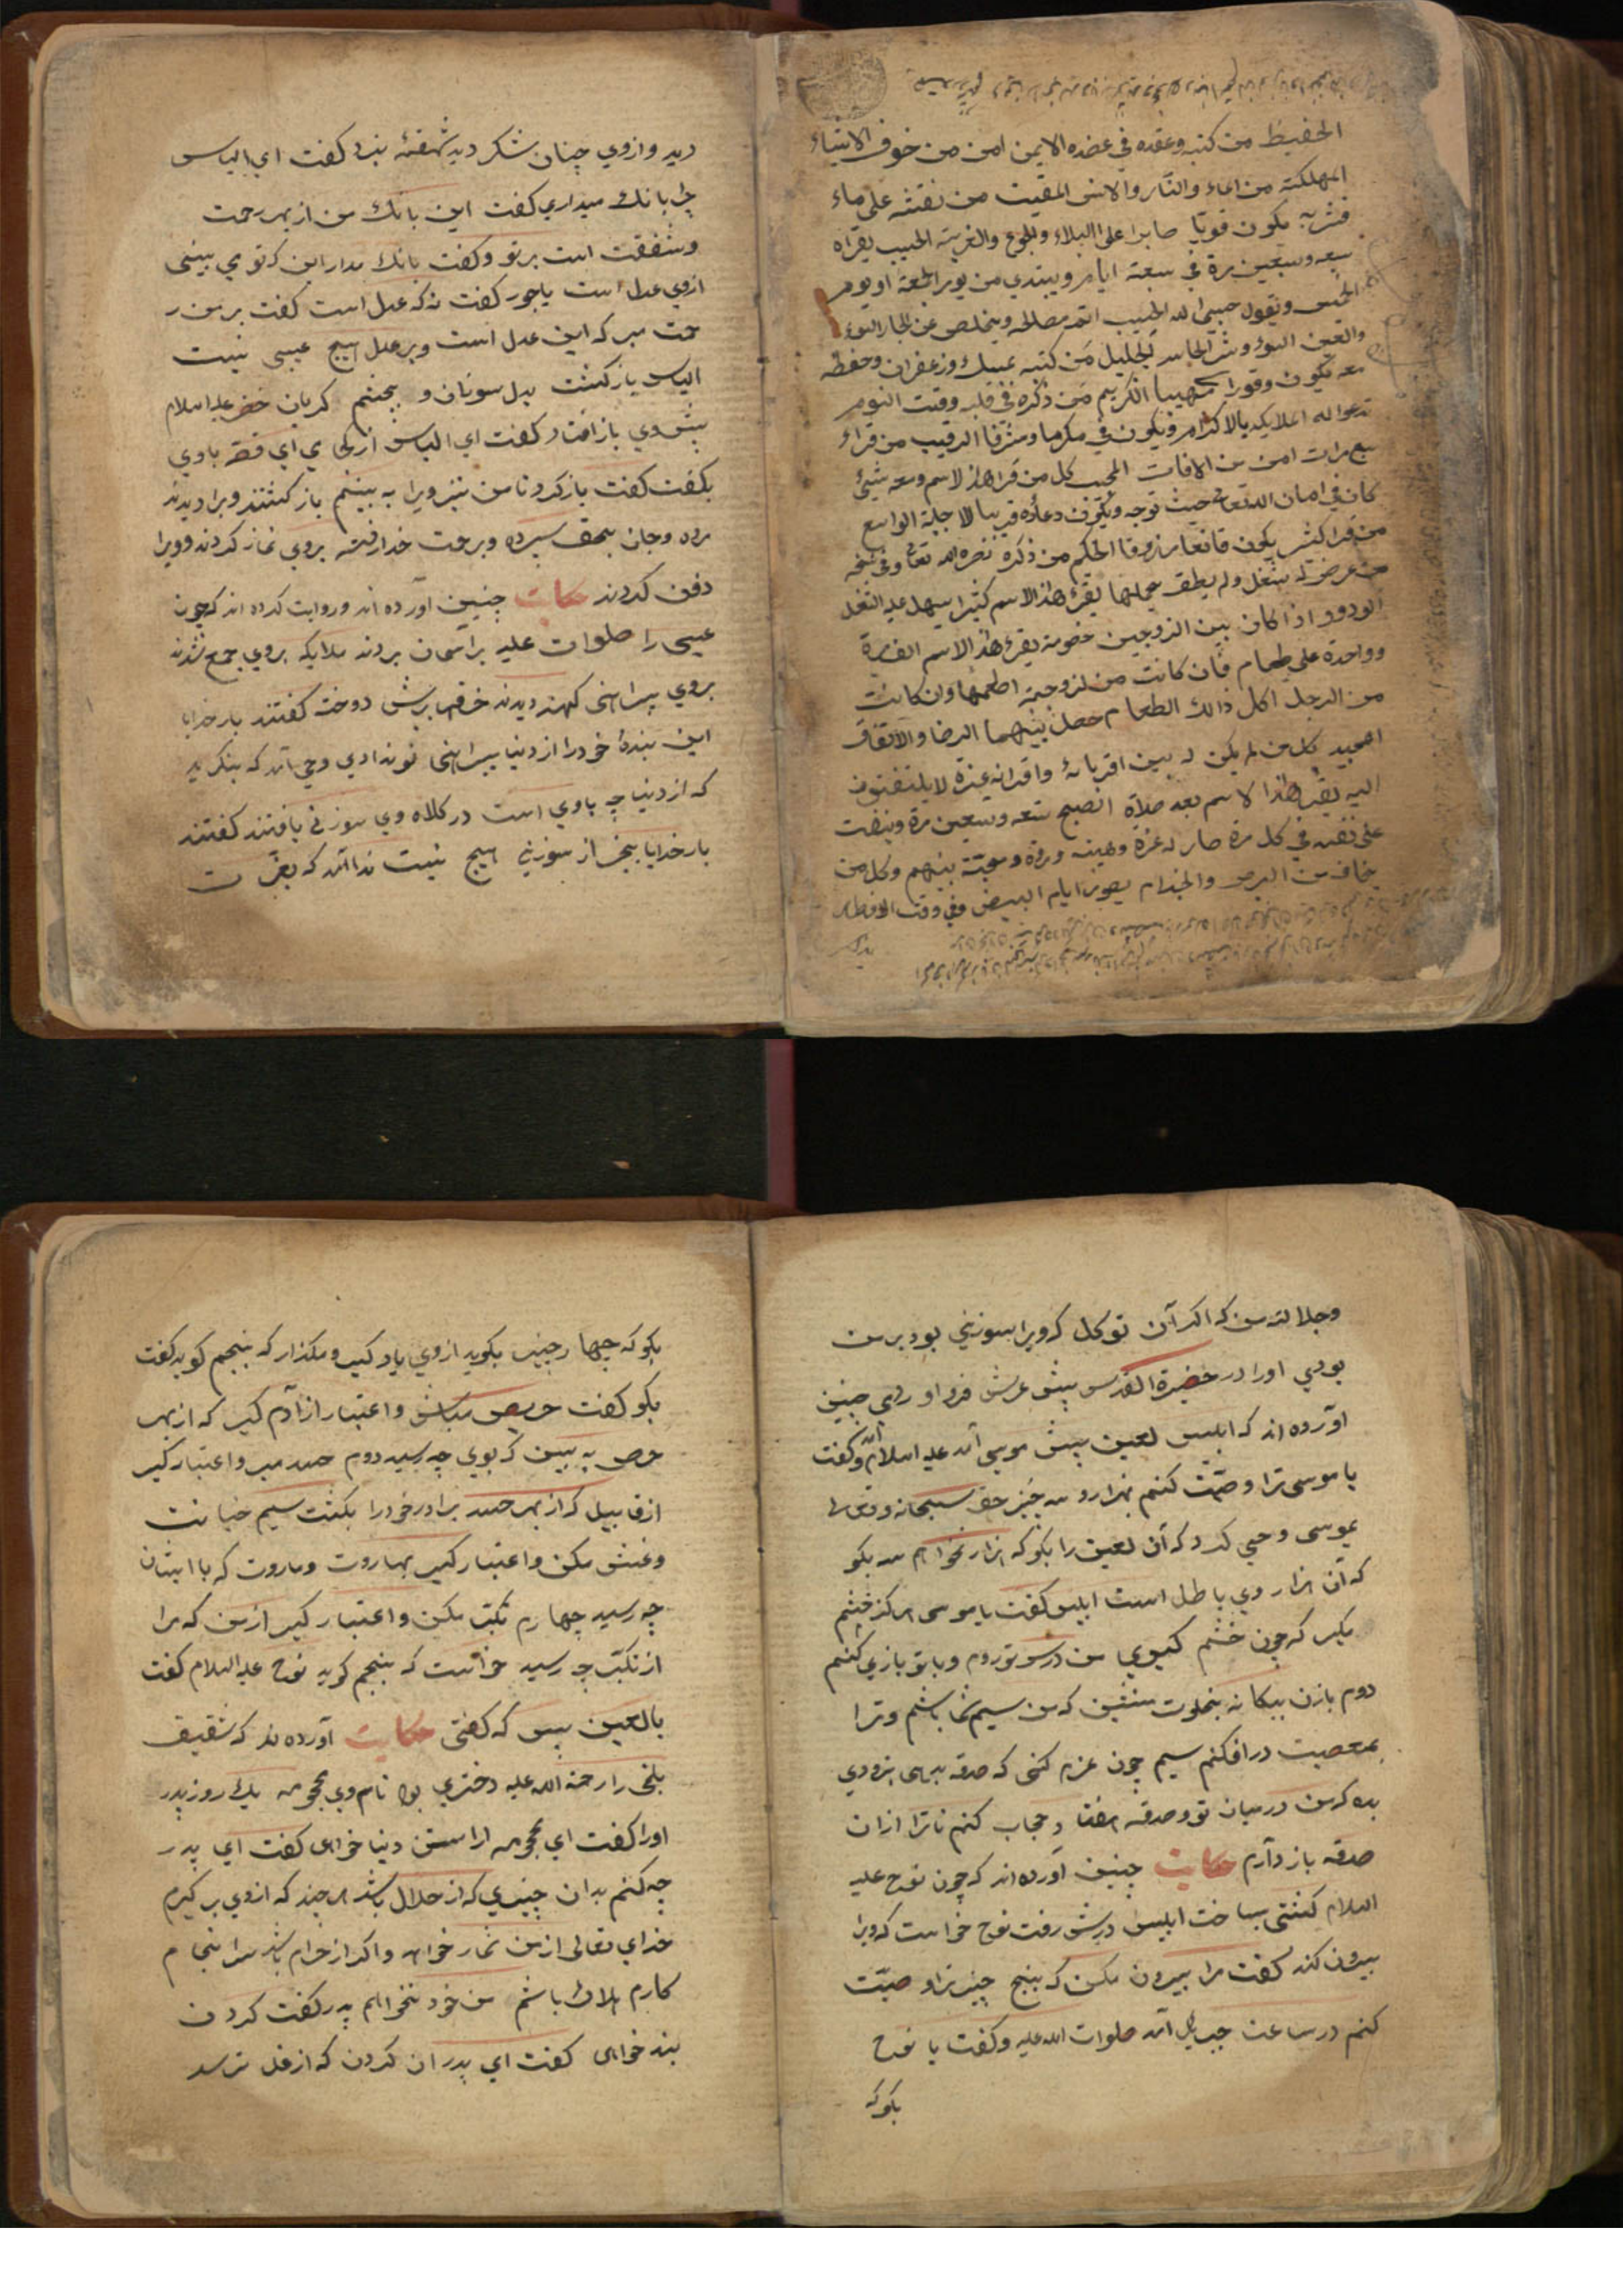 الحفیظ من کتبه وعقده فی عضده الایمن امن من خوف الاشیاء
المهلکة من الماء والنار والانس المقیت من نفثه علی ماء
فشربه یکون قویا صابرا علی البلاء والجوع والغربة الحسیب یقراه
سبعه وسبعین مرة فی سبعة ایام ویبتدی من یوم الجمعة او یوم
الخمیس ویقول حسبی الله الحسیب اتم مصالحه ویتخلص من الجار السوء
والعین السوء وشر الجلیل من کتبه بمسک وزعفران وحفظه
معه یکون وقورا مهیبا الکریم من ذکره فی وقت النوم
تدعو له الملایکه بالاکرام ویکون فی مکرما ومشرفا الرقیب من قراء
سبع مرات امن من الافات المجیب کل من قرا هذا الاسم ومعه شیئ
کان فی امان الله تعالی حیث توجه ویکون دعاؤه قریبا لاجابة الواسع
من قرا کثیر یکون قانعا مرزوقا الحکیم من ذکره نصره الله تعالی وفی نسخه
من عرض له شغل ولم یطق حملها یقرء هذا الاسم کثیرا یسهل علیه الشغل
الودود اذا کان بین الزوجین خصومة یقرء هذا الاسم الف مرة
وواحدة علی طعام فان کانت من لزوجیة اطعمها وان کانت
من الرجل اکل ذالک الطعام حصل بینهما الرضا والاتفاق
المجید کل من لم یکن له بین اقربائه واقرانه عزة لا یلتفتون
الیه یقرء هذا الاسم بعد صلاة الصبح تسعه وتسعین مرة وینفث
علی نفسه فی کل مرة صار له عزة وهیبه ومحبة بینهم وکل من
یخاف من البرص والجذام یصوم ایام البیض وفی وقت الافطار
دید و ازوی چنان شکر دید شهقهٔ بزد کفت ای الیاس
چرا بانک میداری کفت این بانک من از بهر رحمت
وشفقت است بر تو وکفت بانک مدار این که تو می بینی
ازوی عدل است یا جور کفت نه که عدل است کفت بر من ر
حمت مبر که این عدل است وبر عدل هیچ عیبی نیست
الیاس بازکشت بدل سوزان و بچشم کریان خضر علیه السلام
پیش وی باز افتاد کفت ای الیاس از کجا می ای قصه باوی
بکفت کفت باز کرد تا من نیز ویرا به بینم باز کشتند ویرا دیدند
مرده وجان بحق سپرده وبرحمت خدا رفته بروی نماز کردند وویرا
دفن کردند حکایت چنین آورده اند وروایت کرده اند که چون
عیسی را صلوات علیه بر آسمان بردند ملایکه بروی جمع شدند
بروی پیراهنی کهنه دیدند خرقه برش دوخته کفتند بار خدایا
این بندهٔ خود را از دنیا پیراهنی نو ندادی وحی آمد که بنکرید
که از دنیا چه باوی است در کلاه وی سوزنی یافتند کفتند
بار خدایا بجز از سوزنی هیچ نیست ندا آمد که بعزت
وجلالت من که اکر آن توکل که ویرا سوزنی بود بر من
بودی اورا در حضیرة القدس پیش عرش فرو اوردمی چنین
اورده اند که ابلیس لعین پیش موسی آمد علیه السلام وکفت
یا موسی ترا وصیت کنم بهزار وسه چیز حق سبحانه وتعالی
بموسی وحی کرد که آن لعین را بکو که هزار نخواهم سه بکو
که آن هزار وی باطل است ابلیس کفت یا موسی هرکز خشم
مکیر که چون خشم کیری من در سر تو روم وبا تو بازی کنم
دوم بازن بیکانه بخلوت منشین که من سیم شما باشم وترا
بمعصیت درافکنم سیم چون عزم کنی که صدقه بدهی بزودی
بده که من درمیان تو وصدقه افتم وحجاب کنم تا ترا ازان
صدقه باز دارم حکایت چنین آورده اند که چون نوح علیه
السلام کشتی بساخت ابلیس درش رفت نوح خواست که ویرا
بیرون کند کفت مرا بیرون مکن که پنج چیز ترا وصیت
کنم در ساعت جبرئیل آمد صلوات الله علیه وکفت یا نوح
بکو که
بکو که چهار چیز بکوید ازوی یاد کیر ومکذار که پنجم کوید کفت
بکو کفت حریص مباش واعتبار از آدم کیر که از بهر
حرص به بین که بوی چه رسید دوم حسد مبر واعتبار کیر
از قابیل که از بهر حسد برادر خود را بکشت سیم خیانت
وغش مکن واعتبار کیر بهاروت وماروت که با ایشان
چه رسید چهارم تکبر مکن واعتبار کیر از من که مرا
از تکبر چه رسید خواست که پنجم کوید نوح علیه السلام کفت
یا لعین بس که کفتی حکایت آورده اند که شقیق
بلخی را رحمة الله علیه دختری بود نام وی یک روز پدر
اورا کفت ای از استن دنیا خواهی کفت ای پدر
چه کنم بدان چیزی که از حلال باشد هر چند که ازوی برکیرم
خدای تعالی از من شمار خواهد واکر از حرام باشد سرانجام
کارم هلاک باشم من خود نخواهم پدر کفت کردن
بند خواهی کفت ای پدر ان کردن که از غل ترسد